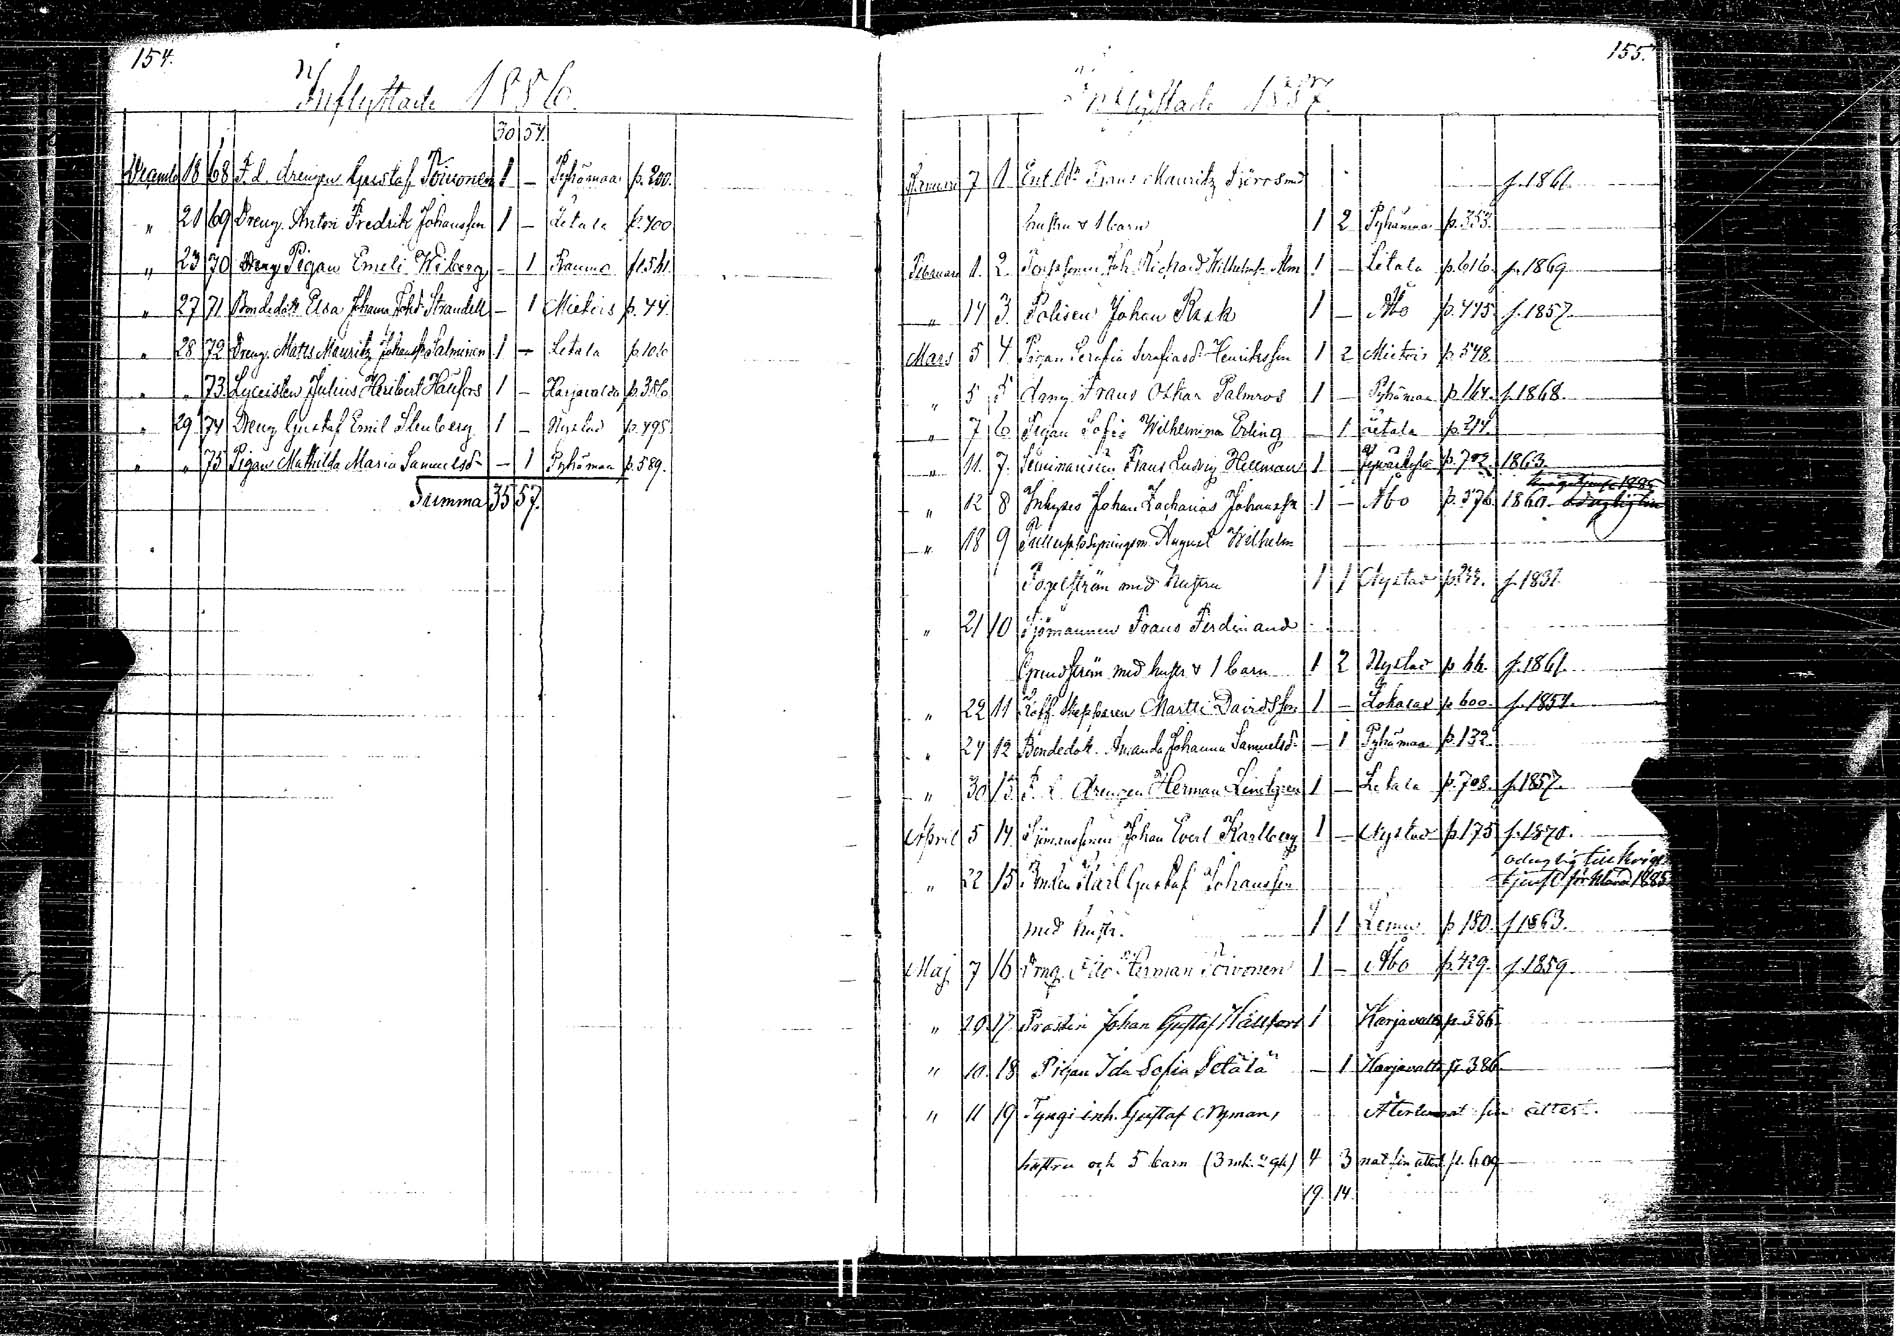 154.
Inflyttade 1886.
30 54.
18 68 F. d. drengen Gustaf Toivonen 1 – Pyhämaa p. 200.
" 21 69 Dreng. Anton Fredrik Johansson 1 – Letala p. 400
" 23 70 Pigan Emeli Wiberg – 1 Raumo p. 541.
" 27 71 Bondedotr. Elsa Johanna Strandell – 1 Mietois p. 44.
" 28 72 Dreng. Matts Mauritz Salminen 1 – Letala p. 106
" " 73. Lyceisten Julius Heribert 1 – Harjavalta p. 386.
" 29 74 Dreng Gustaf Emil Stenberg 1 – Nystad p. 495
" " 75 Pigan Mathilda Maria Samuelsdr – 1 Pyhämaa p. 589.
Summa 35 57.
155.
Inflyttade 1887.
Januari 7 1 Frans Mauritz med f. 1861.
hustru & 1 barn 1 2 Pyhämaa p. 353.
Februari 1. 2. Joh. Richard Wilhelmsr Alm 1 – Letala p. 616. f. 1869
" 14 3. Polisen Johan Rask 1 – Åbo p. 445 f. 1857.
Mars 5 4. Pigan Serafia Henriksson 1 2 Mietois p. 548.
" 5 5 dreng Frans Oskar Palmros 1 – Pyhämaa p. 164. f. 1868.
" 7 6 Pigan Sofia Wilhelmina Erling – 1 Letala p. 217.
" 11. 7. Seminaristen Frans Ludvig Hellman 1 – p. 702. 1863.
" 12 8 Inhyses Johan Zacharias Johansson 1 – Åbo p. 376. 1860.
" 18 9 August Wilhelm
Fogelström med hustru 1 1 Nystad f. 1831.
" 21 10 Sjömannen Frans Ferdinand
Grundström med hustr & 1 barn 1 2 Nystad p. 66. f. 1861.
" 22 11 Koff. skepparen Martti Davidsson 1 – Lokalax p. 600. f. 1854.
" 24 12 Bondedotr. Amanda Johanna Samuelsdr – 1 Pyhämaa p. 132.
" 30 13. F. d. drengen Herman Lindgren 1 – Letala p. 708. f. 1857.
April 5 14. Johan Evert Karlberg 1 – Nystad p. 175 f. 1870.
oduglig till krigs
tjenst förklarad 1885
" 22 15. Karl Gustaf Johansson
med hustr. 1 1 Lemu p. 180. f. 1863.
Maj 7 16 Dreng. Herman Toivonen 1 – Åbo p. 429. f. 1859.
" 10 17. Prosten Johan Gustaf Hällfors 1 Harjavalta p. 386.
" 10. 18. Pigan Ida Sofia Setälä – 1 Harjavalta p. 386.
" 11 19 Gustaf Nyman, Återlemnat sin attest.
hustru och 5 barn (3 mk. 2 qk) 4 3 p. 609
19. 14.